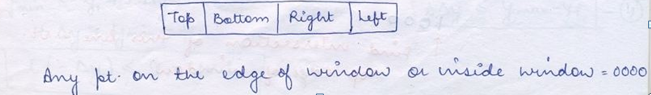 Top Bottom Right Left
Any pt. on the edge of window or inside window = 0000